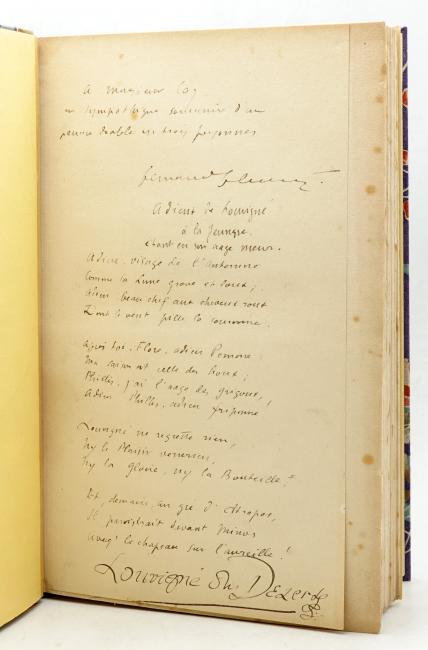 à monsieur
en sympathique souvenir d'un
pauvre diable en trois personnes
Fernand Fleuret.
Adieux de Louvigné
à la jeunesse
étant en son aage meur.
Adieu, visage de l'Automne
Comme la Lune grave et doux ;
Adieu, beau chef aux cheveux roux
Dont le vent pille la couronne.
Flore, adieu Pomone
Ma saison est celle des houx ;
Philis, j'ai l'aage des grigous,
Adieu Philis, adieu friponne
Louvigné ne regrette rien,
Ny le Plaisir
Ny la gloire, ny la Bouteille !
Et, demain, au gré d'Atropos,
Il paroistrait devant Minos
Aveq' le chapeau sur l'aureille !
Louvigné du Dezert